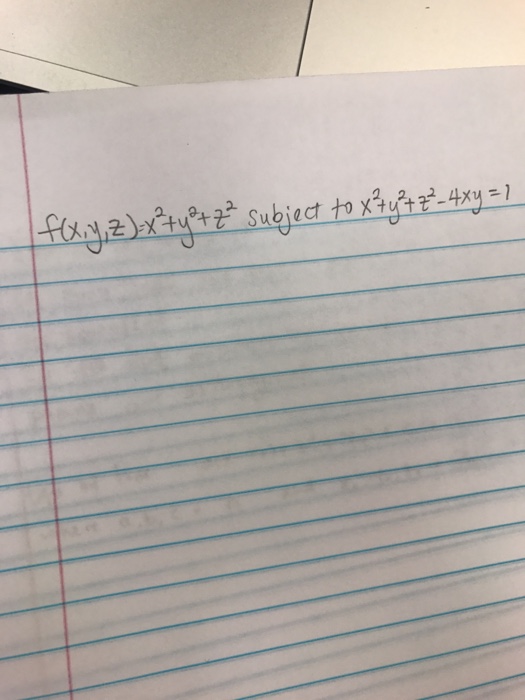 f(x,y,z)=x²+y²+z² subject to x²+y²+z²-4xy=1